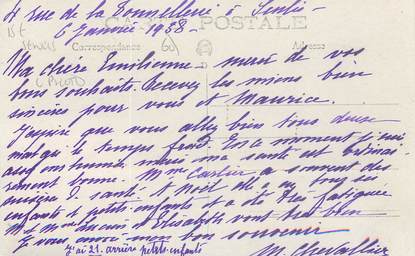 4 rue de la Tonnellerie à Senlis
6 Janvier 1938 -
CARTE POSTALE
Correspondance
Adresse
Ma chère Emilienne - merci de vos
bons souhaits. Recevez les miens bien
sincères pour vous et Maurice.
J'espère que vous allez bien tous deux
malgré le temps froid. En ce moment je suis
assez enrhumée, mais ma santé est
bonne. Mme Cartier a
santé. à Noël elle a eu tous ses
enfants et petits-enfants et a été très fatiguée
Mr et Mme Lucien et Elisabeth vont très bien
Je vous envoie mon bon souvenir
J'ai 21 arrière petits-enfants
M. Chevallier